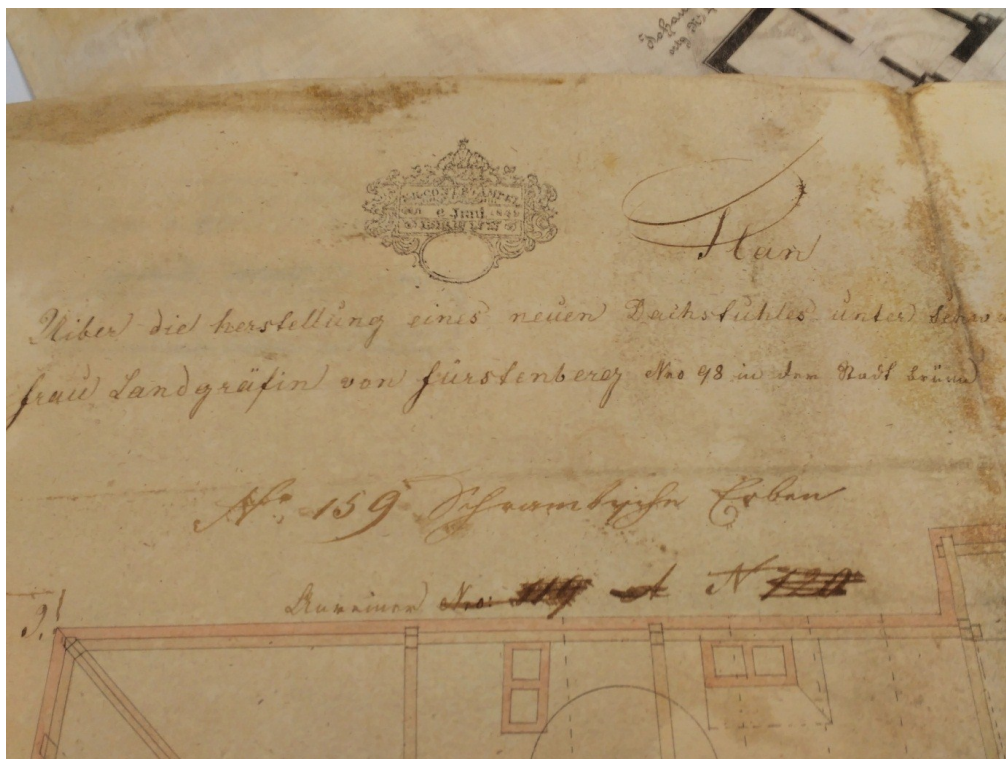 Plan
Uiber die herstellung eines neuen Dachstuhles unter
frau Landgräfin von fürstenberg Nro 98 in der Stadt brünn
No 159 Schrambische Erben
Nro: 119 N 120